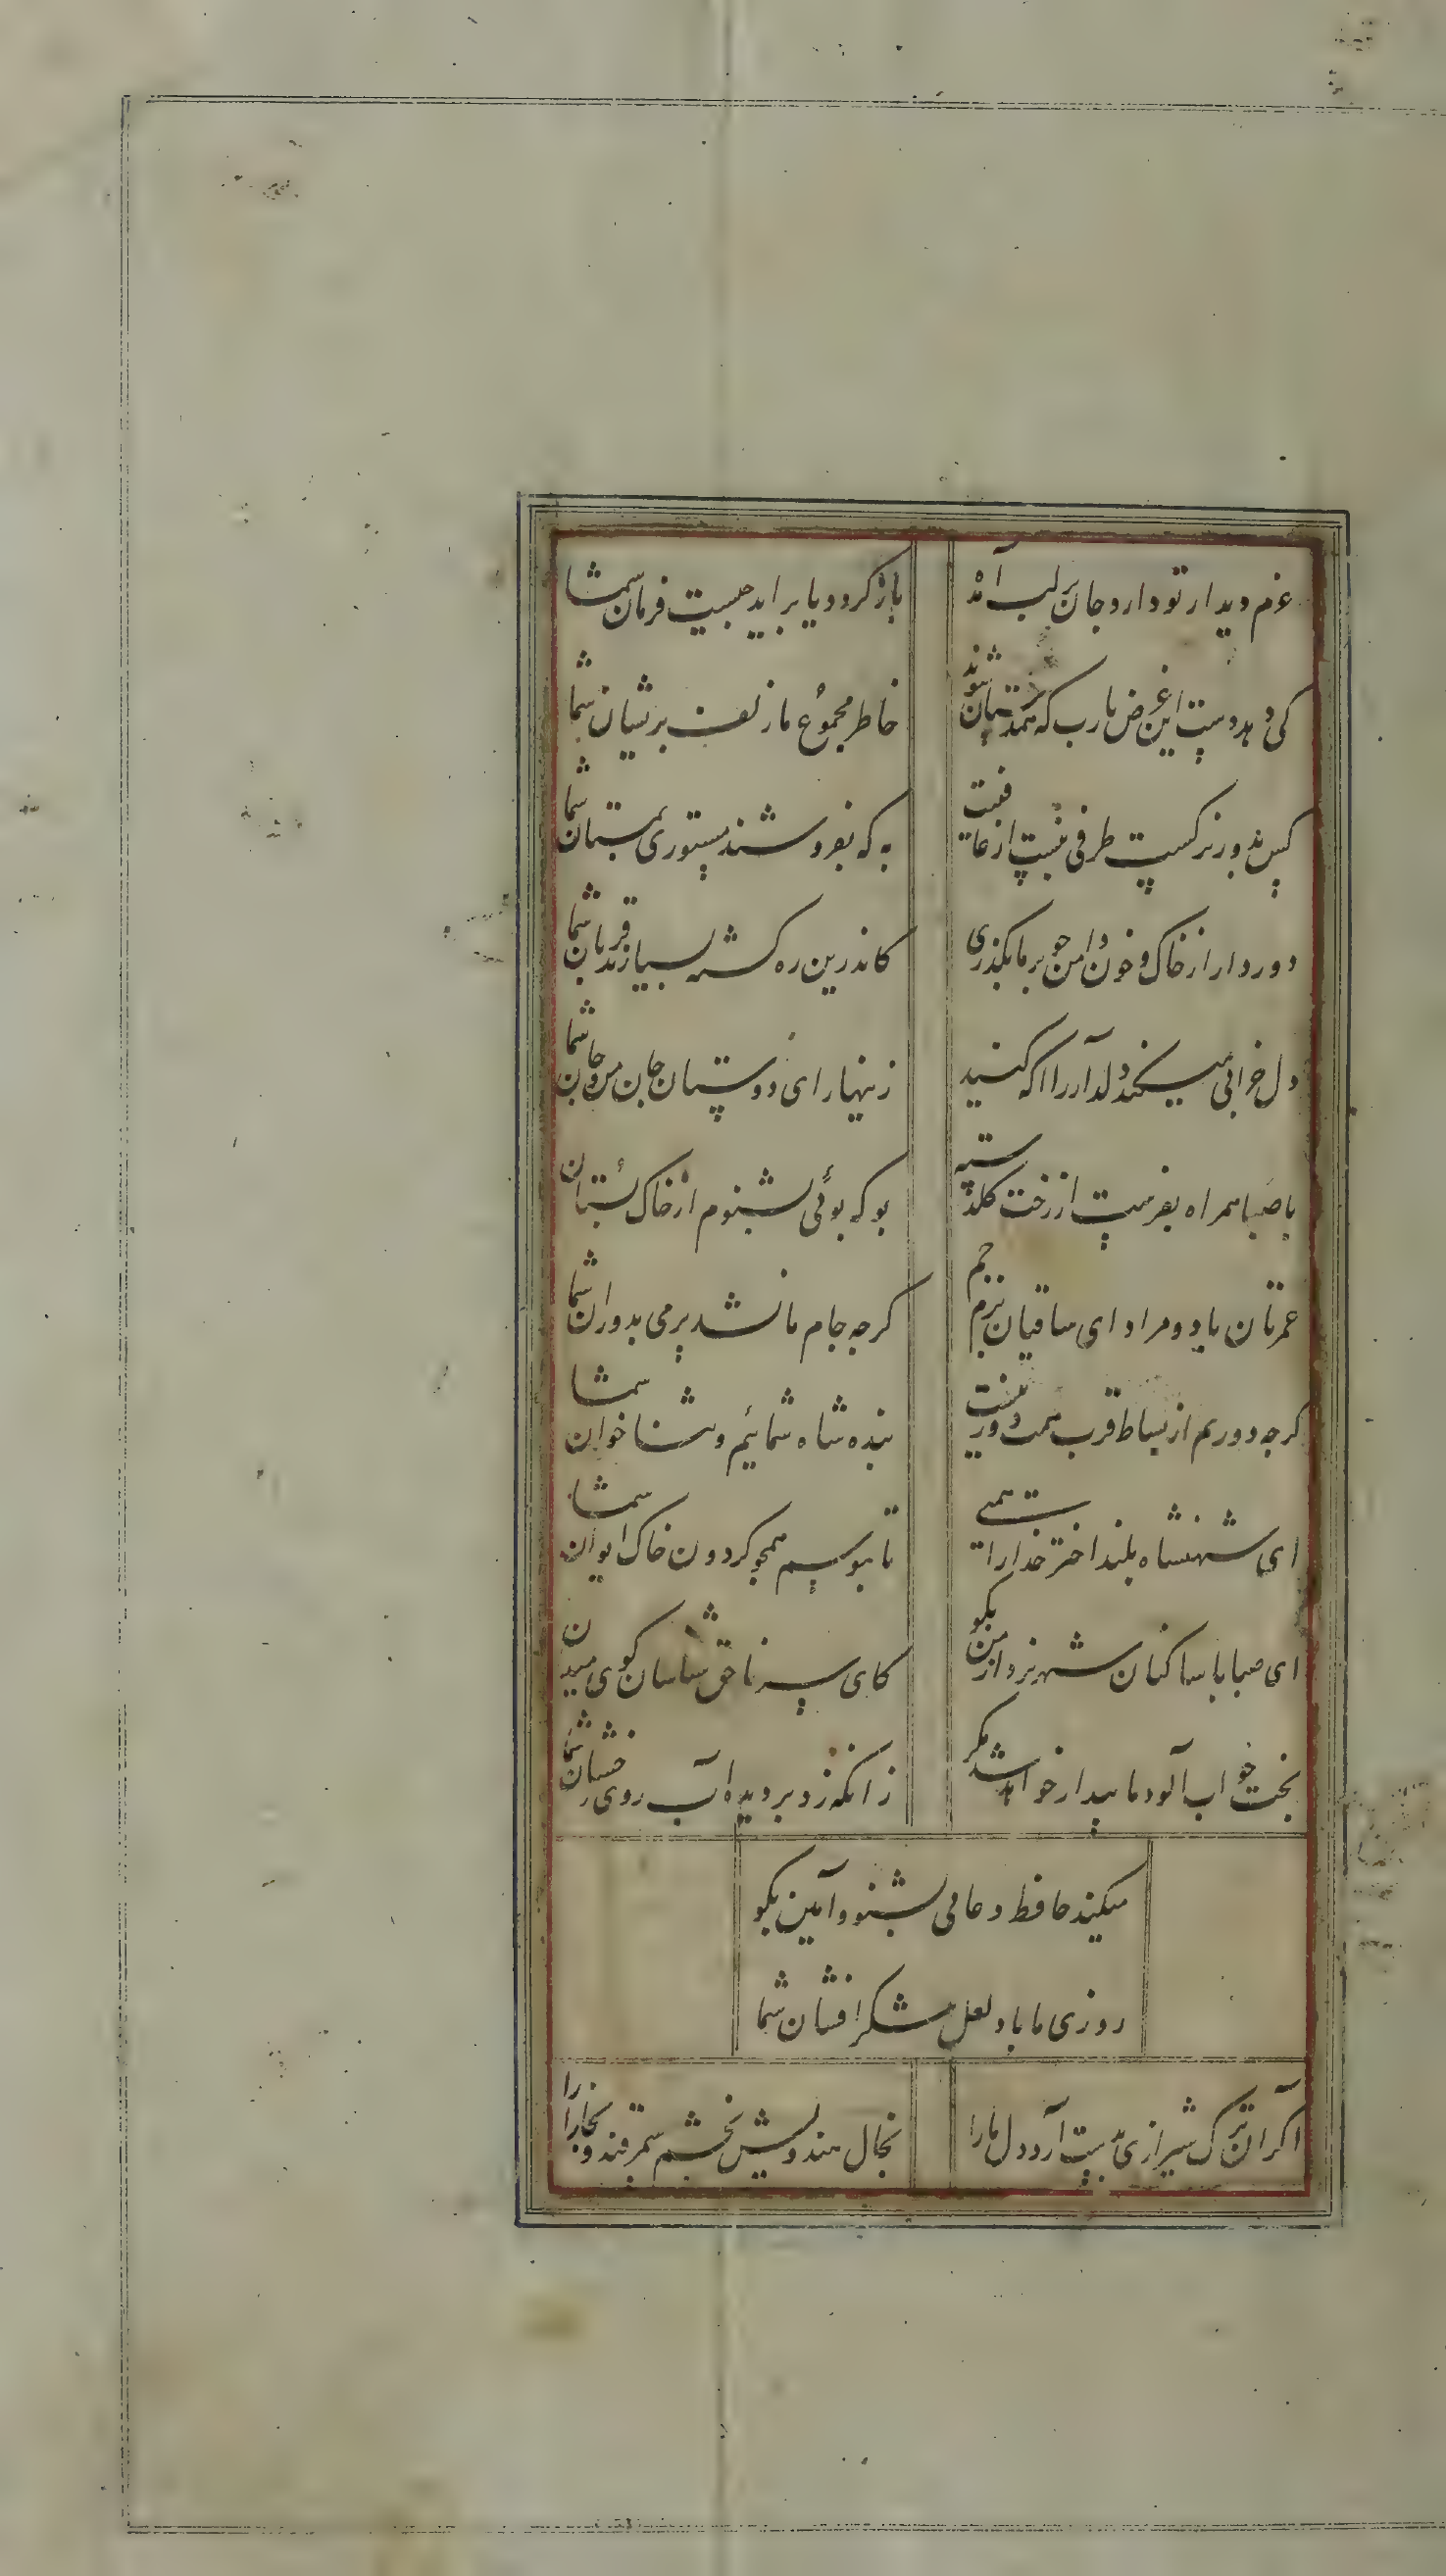 عزم دیدار تو دارد جان بر لب آمده
باز کردد یا براید چیست فرمان شما
کی دهد دست این غرض یارب که همدستان شوند
خاطر مجموع ما زلف پریشان شما
کس بدور نرکست طرفی نبست از عافیت
به که نفروشند مستوری بمستان شما
دور دار از خاک و خون دامن چو بر ما بکذری
کاندرین ره کشته بسیارند قربان شما
دل خرابی میکند دلدار را اکه کنید
زینهار ای دوستان جان من و جان شما
با صبا همراه بفرست از رخت کلدسته
بو که بوئی بشنوم از خاک بستان
عمرتان باد و مراد ای ساقیان بزم جم
کرچه جام ما نشد پر می بدوران شما
کرچه دوریم از بساط قرب همت دور نیست
بنده شاه شمائیم و ثنا خوان شما
ای شهنشاه بلند اختر خدا را همتی
تا ببوسم همچو کردون خاک ایوان شما
ای صبا با ساکنان شهر یزد از من بکو
کای سر ناحق شناسان کوی میدان
بخت خواب آلود ما بیدار خواهد شد مکر
زانکه زد بر دیده آب روی رخشان شما
میکند حافظ دعائی بشنو و آمین بکو
روزی ما باد لعل شکر افشان شما
اکر ان ترک شیرازی بدست آرد دل ما را
بخال هندویش بخشم سمرقند و بخارا را